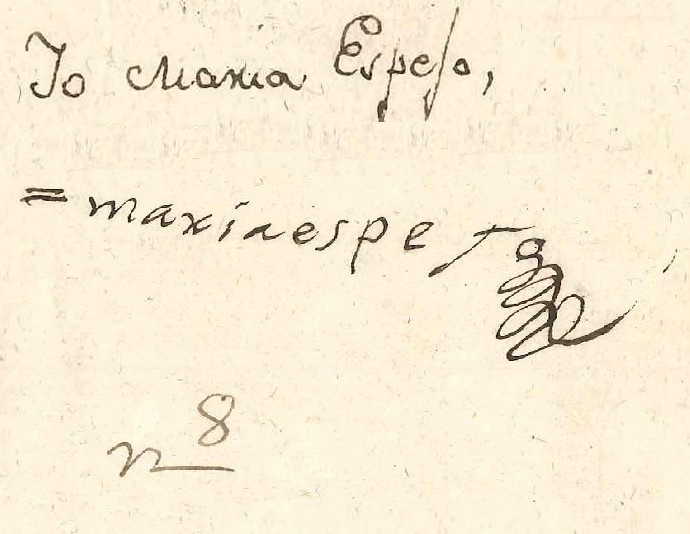 Io Maria Espeſo,
= mariaespeſo
n 8